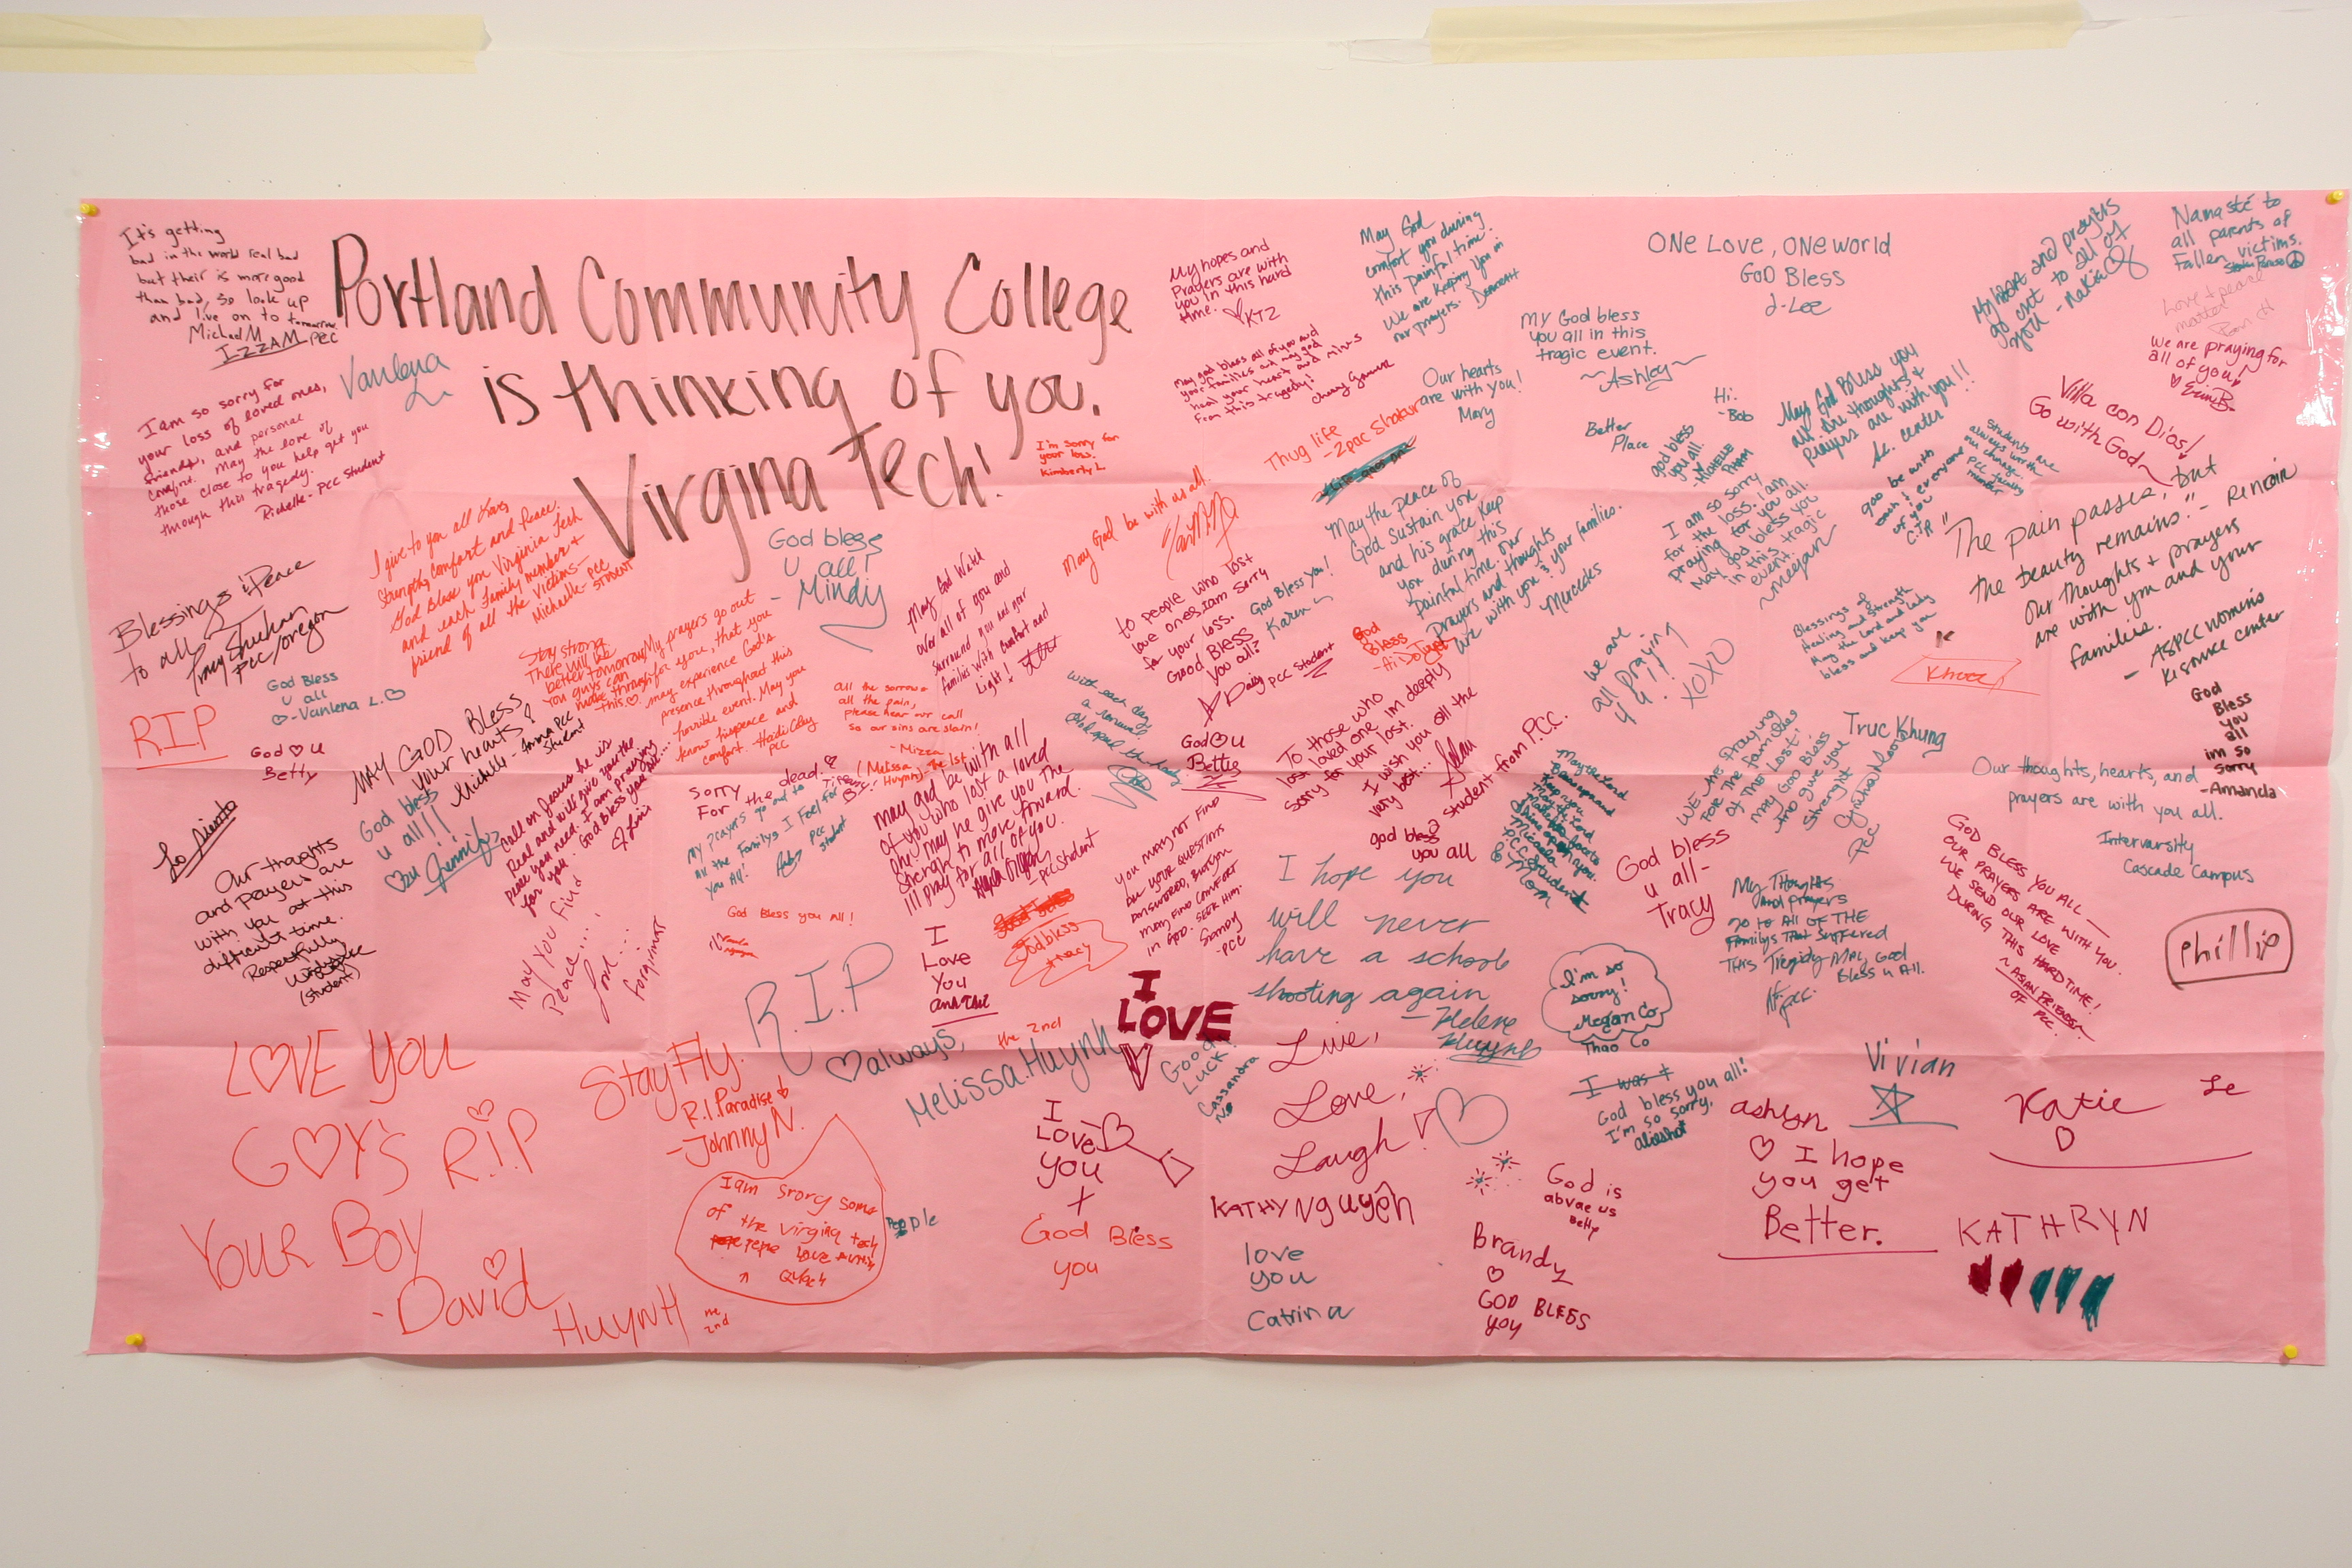 It's getting
bad in the world real bad
but their is more good
than bad, so look up
and live on to tomorrow.
Michael M
IZZAM PCC
Portland Community College
is thinking of you.
Virgina Tech!
Vanlena
L.
I am so sorry for
your loss of loved ones,
friends, and personal
comfort. May the love of
those close to you help get you
through this tragedy.
Richelle - PCC student
My hopes and
Prayers are with
you in this hard
time. KTZ
May God
comfort you during
this painful time.
We are keeping you in
our prayers.
May god bless all of you and
your families and may god
heal your heart and minds
from this tragedy!
ONE LOVE, ONE world
GOD Bless
J-Lee
My God bless
you all in this
tragic event.
~Ashley~
My heart and prayers
go out to all of
you - Nakia
Namaste to
all parents of
Fallen victims.
Love + peace
matter
We are praying for
all of you!
Our hearts
are with you!
Mary
Hi.
-Bob
Better
Place
god bless
you all.
May God Bless you
all the thoughts &
prayers are with you!!
Villa con Dios!
Go with God~
Students are
always worth
our change.
PCC faculty
member
I'm sorry for
your loss.
Kimberly L.
Thug life
-2pac Shakur
May God be with us all.
I give to you all Love,
Strength, Comfort and Peace.
God Bless you Virginia Tech
and each Family member +
friend of all the victims -
Michelle - PCC
STUDENT
God bless
U all!
- Mindy
May God Watch
over all of you and
Surround you and your
families with Comfort and
Light!
to people who lost
love ones, I am sorry
for your loss.
GOOD BLESS
you all!
PCC Student
God Bless You!
Karen
May the peace of
God Sustain you
and his grace keep
you during this
painful time. Our
Prayers and thoughts
are with you & your families.
Mercedes
God
Bless
I am so sorry
for the loss. I am
praying for you all.
May god bless you
in this tragic
event.
~Meegan
god be with
each & everyone
of you
C.J.R
"The pain passes, but
the beauty remains." - Renoir
Our thoughts + prayers
are with you and your
families.
- ASPCC Women's
Resource Center
Blessings & Peace
to all
PCC/oregon
God Bless
U all
-Vanlena L.
R.I.P
God ♡ U
Betty
Stay strong
There will be
better tomorrow
You guys can
make through
this.
My prayers go out
for you, that you
may experience God's
presence throughout this
horrible event. May you
know his peace and
comfort. Heidi Clay
PCC
All the sorrow &
all the pain,
please hear our call
so our sins are slain!
- Mizza
(Melissa
Huynh) - the 1st
With each day
a renewal
God ♡ U
Bettie
we are
all praying
4 u!!
XOXO
Blessings of
Healing and Strength
May the Lord and Lady
bless and keep you
Khoa
God
Bless
you
all
im so
sorry
-Amanda
MAY GOD BLESS
your hearts!
Michelle - Anna PCC
student
God bless
u all!!
Jennifer
Call on Jesus he is
Real and will give you the
peace you need. I am praying
for you. God bless you all...
Sorry
For the dead!
My prayers go out to
all the Familys I Feel for
You All!
PCC
student
May god be with all
of you who lost a loved
one. may he give you the
Stength to move forward.
I'll pray for all of you.
-pcc student
To those who
lost loved one im deeply
sorry for your lost.
I wish you all the
very best...
student from P.C.C.
god bless
you all
May the Lord
Bless you and
Keep you
May the Lord
Micaela
PCC student
& Mom
WE Are Praying
For The families
of Thos Lost!
May GOD Bless
And give you
Strenght
PCC
Truc Khung
Our thoughts, hearts, and
prayers are with you all.
Intervarsity
Cascade Campus
Our thoghts
and prayers are
with you at this
difficult time.
Respectfully
(student)
May You Find
Peace...
Love...
forgivness
God Bless you All!
I
Love
You
God bless
tracy
YOU MAY NOT FIND
ALL YOUR QUESTIONS
ANSWERED, BUT YOU
MAY FIND COMFORT
IN GOD. SEEK HIM.
SANDY
-PCC
I hope you
will never
have a school
shooting again
- Helene
Huynh
God bless
u all-
Tracy
My Thoughts
and prayers
go to All OF THE
Familys That Suffered
This Tregidy May, God
Bless u All.
PCC.
GOD BLESS YOU ALL -
OUR PRAYERS ARE WITH YOU.
WE SEND OUR LOVE
DURING THIS HARD TIME!
~ASIAN FRIENDS~
OF
PCC.
Phillip
I'm so
sorry!
Megan Co
Thao Co
R.I.P
I
LOVE
always,
the 2nd
Melissa Huynh
Good
Luck!
Cassandra
No
LOVE YOU
GUY'S R.I.P
YOUR BOY
-David
HuyNH
me
2nd
Stay Fly.
R.I. Paradise
-Johnny N.
Iam srory some
of the virginia tech
People
I
LOVE
YOU
+
God Bless
you
Live,
Love,
Laugh!
KATHY Nguyen
love
you
Catrina
I was +
God bless you all!
I'm so sorry.
God is
abvae us
Betty
Brandy
GOD BLESS
YOU
Vivian
ashlyn
I hope
you get
Better.
Katie Le
KATHRYN